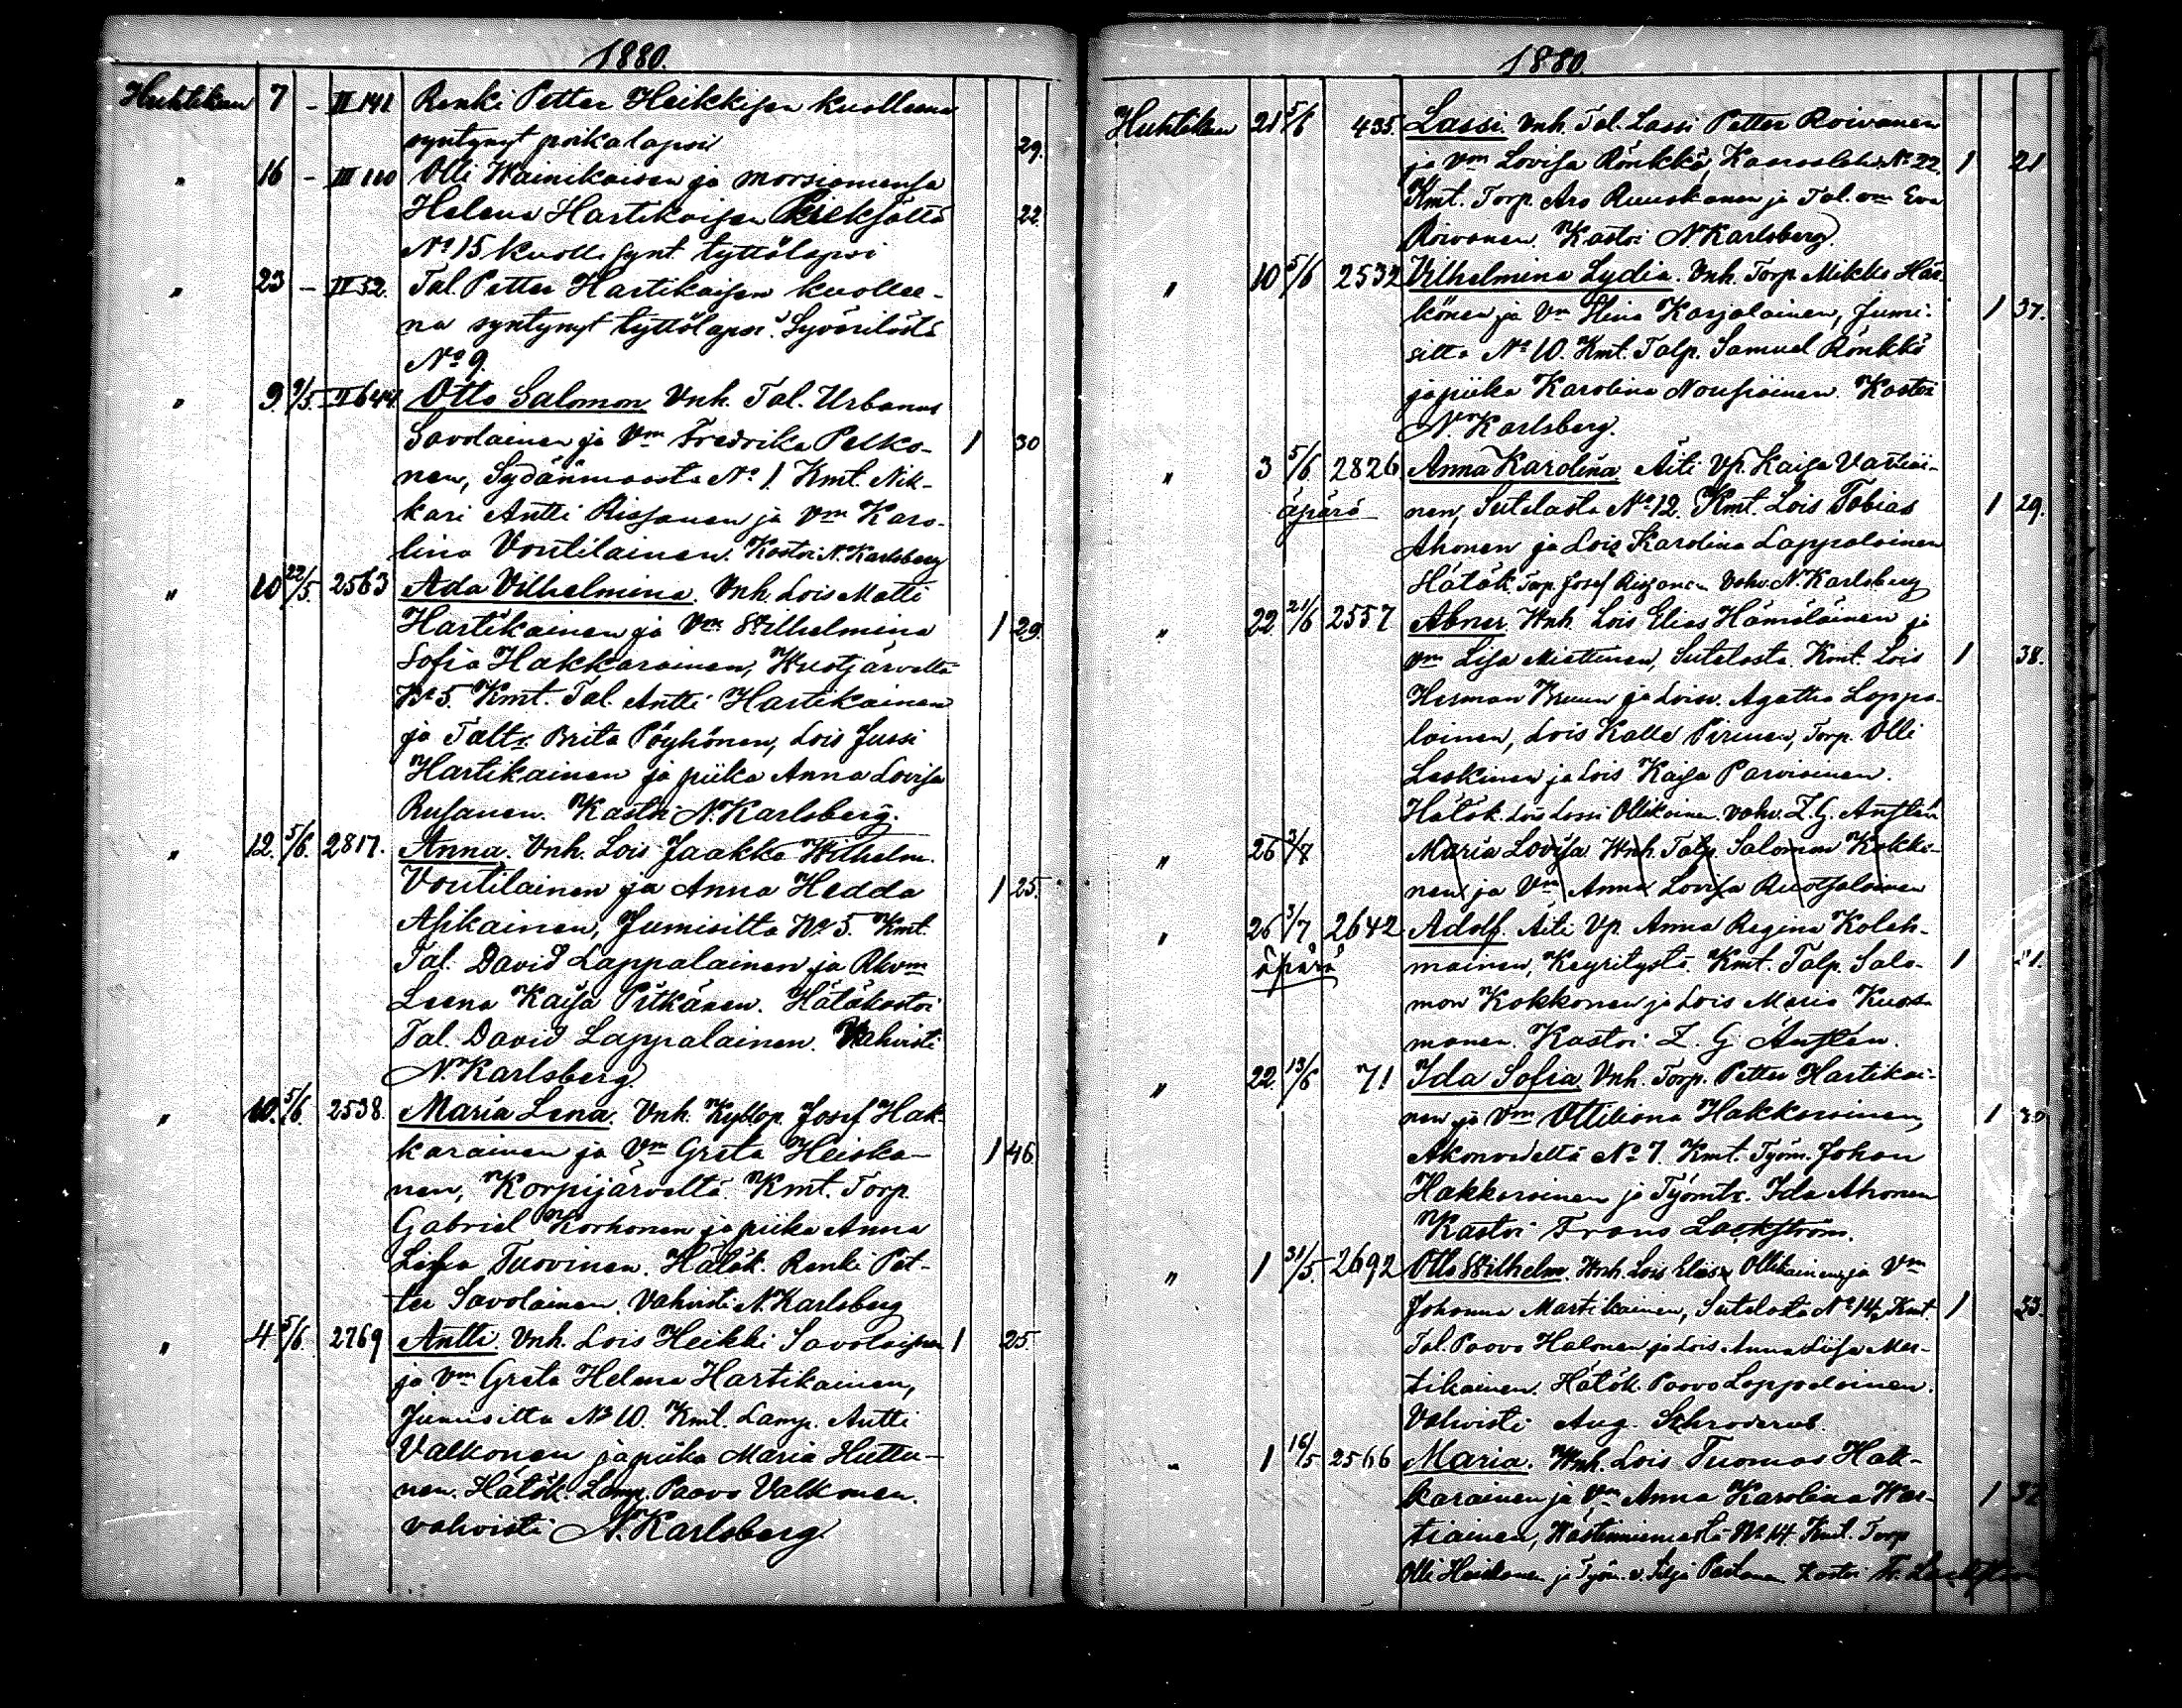 1880.
Huhtikuu 7 – II 141 Renki Petter Heikkisen kuolleena
syntynyt poikalapsi 29.
" 16 – III 110 Olli Wainikaisen ja morsiamensa
Helena Hartikaisen 22
No 15 kuoll. synt. tyttölapsi
" 23 – IV 52. Tal. Petter Hartikaisen kuollee-
na syntynyt tyttölapsi. Syvärilästä
No 9.
" 9 9/5. II 644 Otto Salomon Vnh. Tal. Urbanus
Savolainen ja Vm Fredrika Pelko- 1 30
nen, Sydänmaasta No 1. Kmt. Nik-
kari Antti Rissanen ja Vm Karo-
lina Voutilainen. Kastoi N. Karlsberg
" 10 22/5. 2563 Ada Vilhelmina. Vnh. Lois Matti
Hartikainen ja Vm Wilhelmina 1 29.
Sofia Hakkarainen, Wuotjärveltä
No 5. Kmt. Tal. Antti Hartikainen
ja Taltr. Brita Pöyhönen, Lois Jussi
Hartikainen ja piika Anna Lovisa
Rusanen. Kastoi N. Karlsberg.
" 12. 5/6. 2817. Anna. Vnh. Lois Jaakko Wilhelm.
Voutilainen ja Anna Hedda 1 25.
Asikainen, Jumisilta No 5. Kmt.
Tal. David Lappalainen ja Rkvm
Leena Kaisa Pitkänen. Hätäkastoi
Tal. David Lappalainen. Vahvisti
N. Karlsberg.
" 10. 5/6. 2538. Maria Lena. Vnh. Kyltlop. Josef Hak-
karainen ja Vm Greta Heiska- 1 46.
nen, Korpijärveltä. Kmt. Torp.
Gabriel Korhonen ja piika Anna
Lisa Tuovinen. Hätäk. Renki Pet-
ter Savolainen. Vahvisti N. Karlsberg
" 4 5/6. 2769 Antti. Vnh. Lois Heikki Savolaisen 1 25.
ja Vm Greta Helena Hartikainen,
Jumisilta No 10. Kmt. Lamp. Antti
Valkonen ja piika Maria Huttu-
nen. Hätäk. Lamp. Paavo Valkonen.
vahvisti N. Karlsberg.
1880.
Huhtikuu 21 5/6 435. Lassi. Vnh. Tal. Lassi Petter Roivanen
ja Vm Lovisa Rönkkö, Kaarasla No 22. 1 21
Kmt. Torp. Aro Ruuskanen ja Tal. vm Eva
Roivanen. Kastoi N Karlsberg.
" 10 5/6 2532 Vilhelmina Lydia. Vnh. Torp. Mikko Här-
könen ja Vm Hina Karjalainen, Jumi- 1 37.
silta No 10. Kmt. Talp. Samuel Rönkkö
ja piika Karolina Nousiainen. Kastoi
N. Karlsberg.
" 3 5/6 2826 Anna Karolina. Äiti Vp. Kaisa Vartiai-
äpärä nen, Sutelasta No 12. Kmt. Lois Tobias 1 29.
Ahonen ja Lois Karolina Lappalainen
Hätäk. Torp. Josef Rissanen. Vahv. N. Karlsberg
" 22. 21/6 2557 Abner. Wnh. Lois Elias Hämäläinen ja
vm Lisa Miettinen, Sutelasta. Kmt. Lois 1 38.
Herman Bruun ja Loisv. Agatha Lappa-
lainen, Lois Kalle Pirinen, Torp. Olli
Laskinen ja Lois Kaisa Parviainen.
Hätäk. Lois Lassi Ollikainen. vahv. Z. G. Anslén
" 26 3/8 Maria Lovisa Wnh. Talp. Salomon Kokko-
nen ja Vm Anna Lovisa Ruotsalainen
" 26 3/7 2642 Adolf. Äiti Vp. Anna Regina Koleh-
äpärä mainen, Keyritystä. Kmt. Talp. Salo- 1
mon Kokkonen ja Lois Maria Kuos-
manen. Kastoi Z. G. Anslén.
" 22. 13/6 71 Ida Sofia. Vnh. Torp. Petter Hartikai-
nen ja Vm Ottiliana Hakkarainen, 1 30
Akonvedeltä No 7. Kmt. Työm. Johan
Hakkarainen ja Työmtr. Ida Ahonen
Kastoi Frans Lackström.
" 1 31/5. 2692 Otto Wilhelm. Wnh. Lois Elias Ollikainen ja Vm
Johanna Martikainen, Sutelasta No 14. Kmt. 1 33.
Tal. Paavo Halonen ja Lois Anna Liisa Mar-
tikainen. Hätäk. Paavo Lappalainen.
Vahvisti Aug. Schroderus.
" 1 16/5 2566 Maria. Wnh. Lois Tuomas Hak-
karainen ja Vm Anna Karolina War- 1 32
tiainen, Wästinniemestä No 14. Kmt. Torp
Olli ja Työm. v. Silja Partanen Kastoi Fr. Lackström